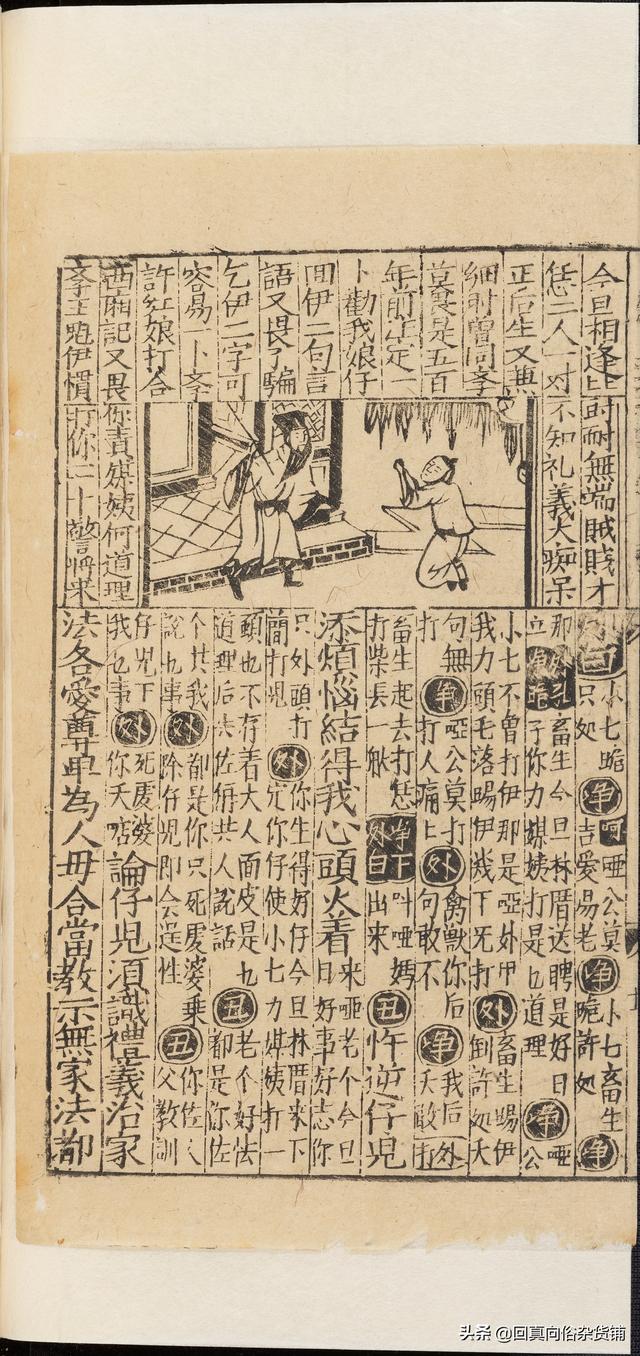 今旦相逢比
恁二人一对
正后生又無
細时曾同李
莫是五百
年前注定一
卜勸我娘仔
回伊二句言
語又畏了騙
乞伊二字可
容易一卜李
許紅娘打合
西廂記又畏
李王魁伊慣
叵耐無端賊賤才
不知礼義大痴呆
你責媒姨何道理
打你二十警將來
外白小七只処净呵啞公莫吉爱易老净小七畜生跪許処净
那外引畜生今旦林厝送聘是好日
立净跪子你力媒姨打是乜道理净啞公
小七不曾打伊那是啞外甲外畜生賜伊
我力頭毛落賜伊幾下牙打倒許処夭
句無净啞公莫打外禽獸你后净我后外
打打人痛上句敢不夭敢打
畜生起去打恁净下叫啞媽丑忤逆仔児
打柴長一外白出來
添煩惱結得我心頭火着來啞老个今旦
日好事好志你
只外頭打外你生得好仔今旦林厝來下
簡打児定你仔使小七力媒姨打一
頭也不存着大人面皮是乜丑老个好怯
道理后共佐併共人說話都是你佐
个共我外都是你只死慶婆乘丑你佐人
說乜事除仔児即会逞性父教訓
仔児下外死慶婆論仔児須識禮義治家
我乜事你夭啀
法各愛尊卑為人毋合當教示無家法都
头条 @回真向俗杂货铺